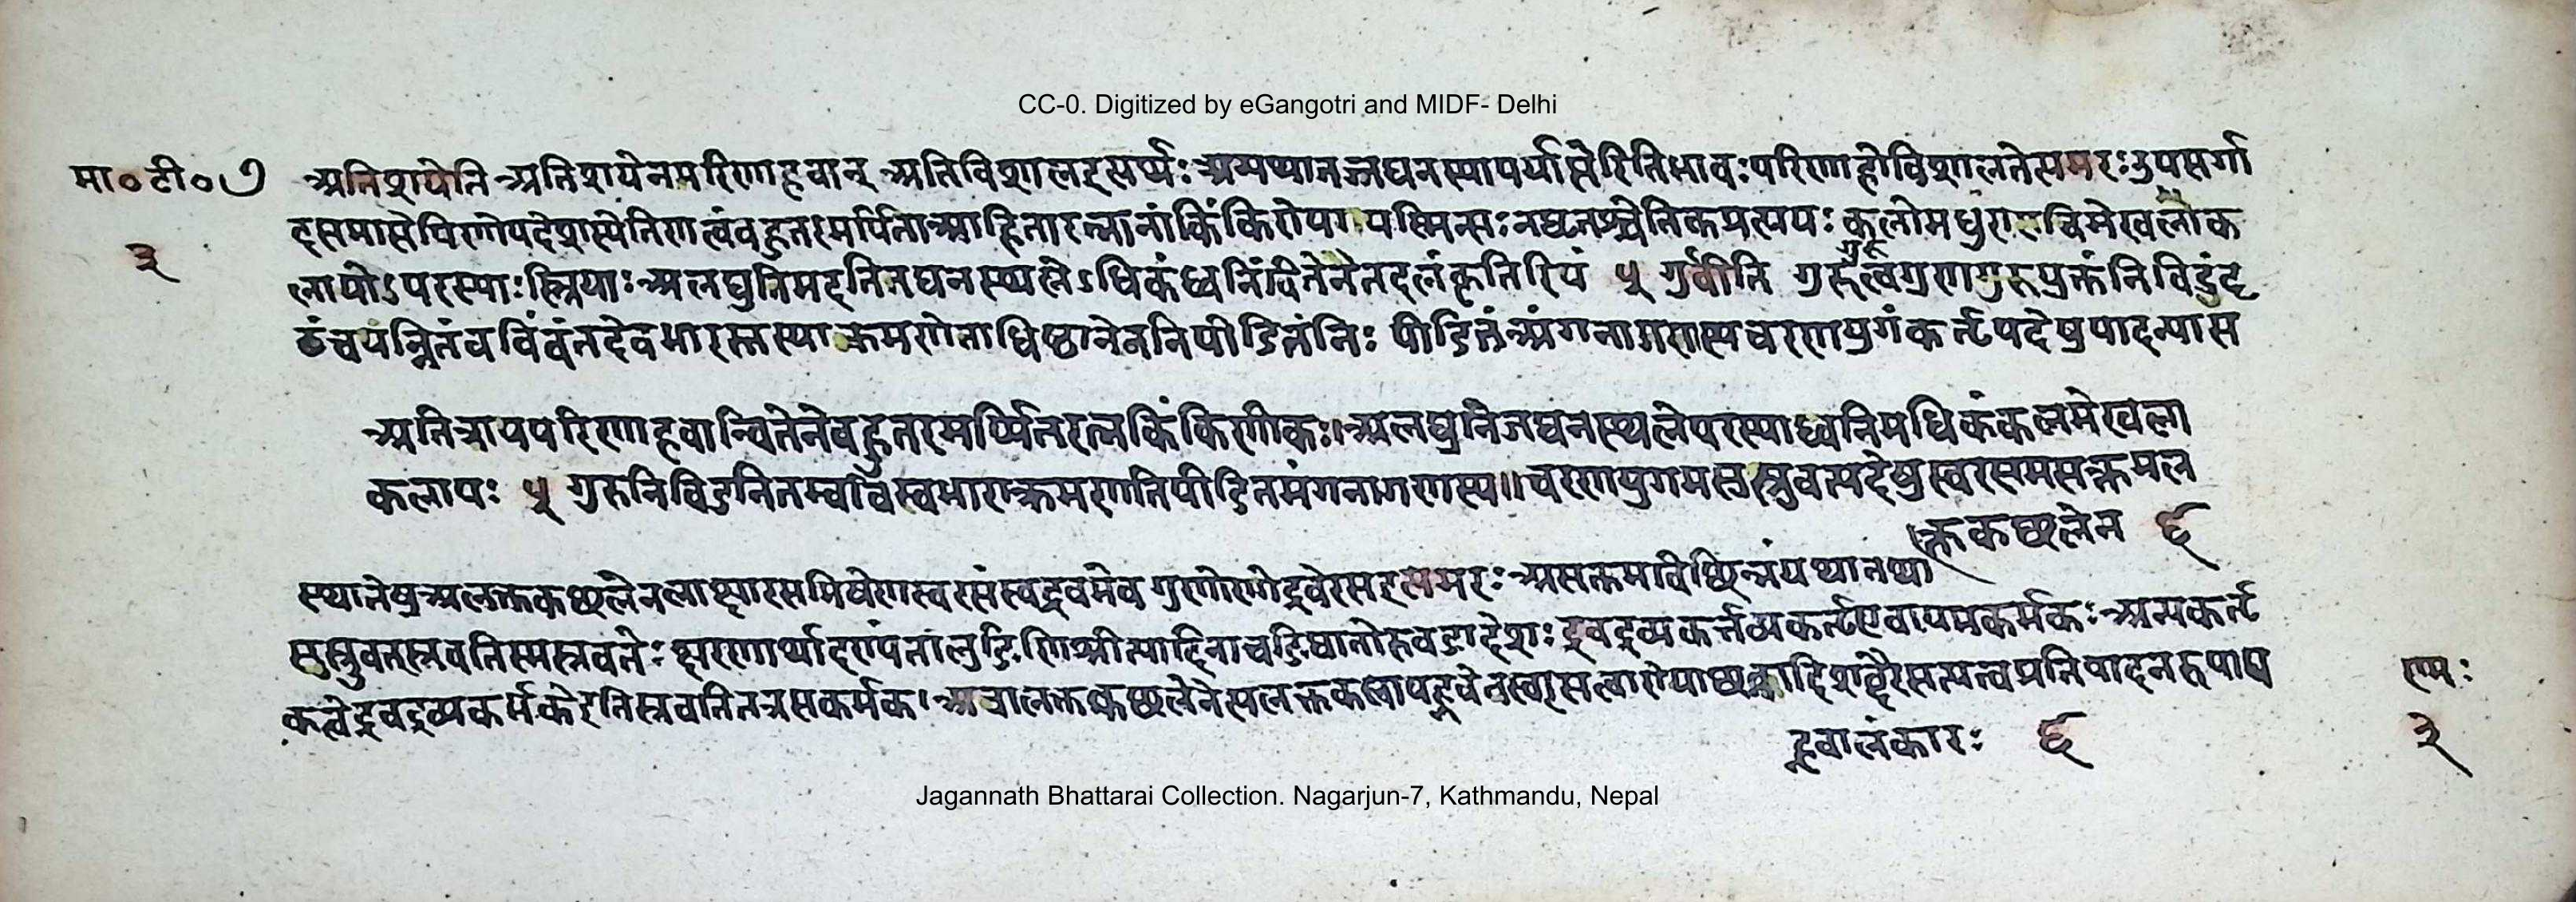 CC-0. Digitized by eGangotri and MIDF- Delhi
मा० टी० ७ अतिशयेति अतिशयेनमरिणाहवान् अतिविशालइत्यर्थः अन्यथानजघनस्यापर्याप्तेरितिभावः परिणाहोविशालतेत्यमरः उपसर्गा
३
दसमासेपिणोपदेशस्येतिणत्वंबहुतरमर्पिता आहितारत्नानांकिंकिणोयेनयस्मिन्सः नद्यृतश्चेतिकप्रत्ययः कलोमधुरा मेखलाक
लापोऽपरस्याः स्त्रियाः अलघुनिमहतिजघनस्थलेऽधिकंध्वनिंवितेनेनैतदलंकृतिरियं ५ गुर्वीति निविडंदृ
ढंचयन्नितंबविंबंतदेवभारस्तस्याक्रमणेनाधिष्ठानेननिपीडितंनिः पीडितंअंगनागणस्यचरणयुगंकर्तृपदेषुपादन्यास
अतिशयपरिणाहवान्वितेनेबहुतरमर्प्पितरत्नकिंकिणीकः। अलघुनिजघनस्थलेपरस्याध्वनिमधिकंकलमेखला
कलापः ५ गुरुनिविडनितम्बबिंबभाराक्रमणनिपीडितमंगनागणस्य॥ चरणयुगमसुस्रुवत्पदेषुस्वरसमसक्तमल
क्तकछलेन ६
स्थानेषुअलक्तकछलेनलाक्षारसमिषेणस्वरसंस्वद्रवमेव गुणेरागेद्रवेरसइत्यमरः असक्तमविछिन्नंयथातथा
सुस्रुवतस्रवतिस्मस्रवतेः क्षरणार्थादणंतालुङि णिश्रीत्यादिनाचङिधातोरुवङादेशः द्रवद्रव्यकर्त्तव्यकर्तृएवायमकर्मकः अन्यकर्तृ
कत्वेद्रवद्रव्यकर्मकेरतिस्रवतितत्रसकर्मक। अत्रालक्तकछलेनेत्यलक्तक प्रतिपादनरूपाप
ह्नवालंकारः ६
रामः
३
Jagannath Bhattarai Collection. Nagarjun-7, Kathmandu, Nepal